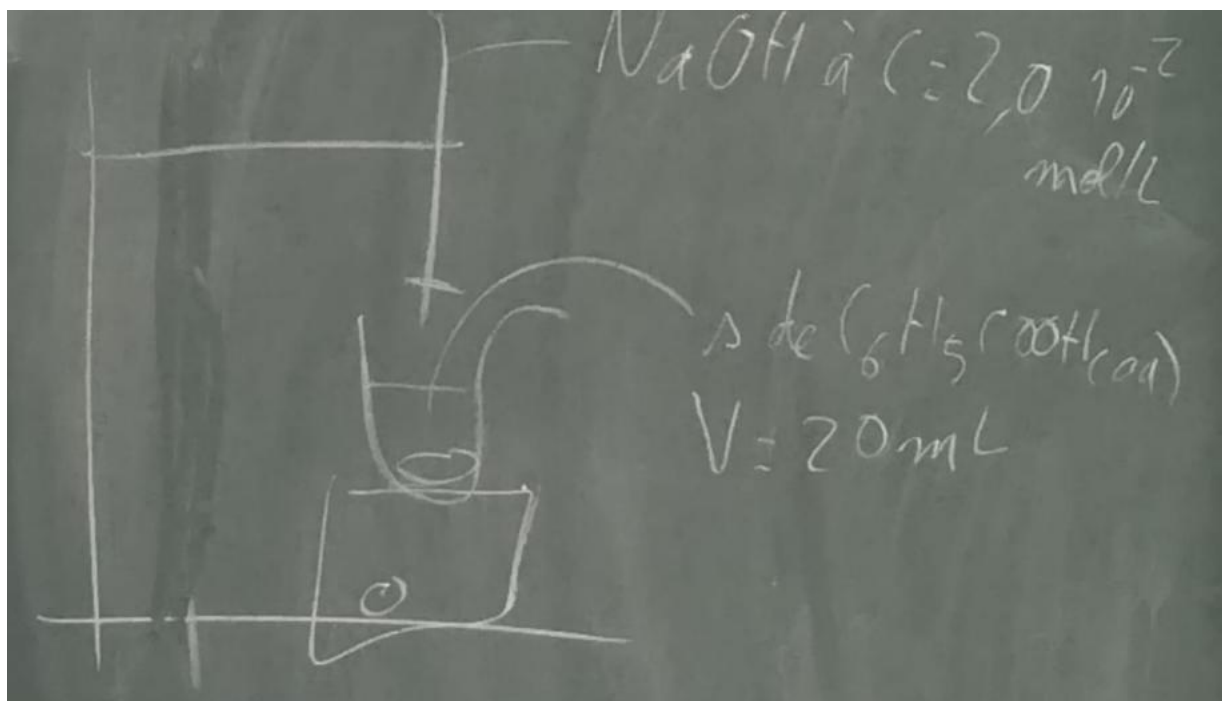 NaOH à C = 2,0 10⁻²
mol/L
s de C₆H₅COOH(aq)
V = 20 mL